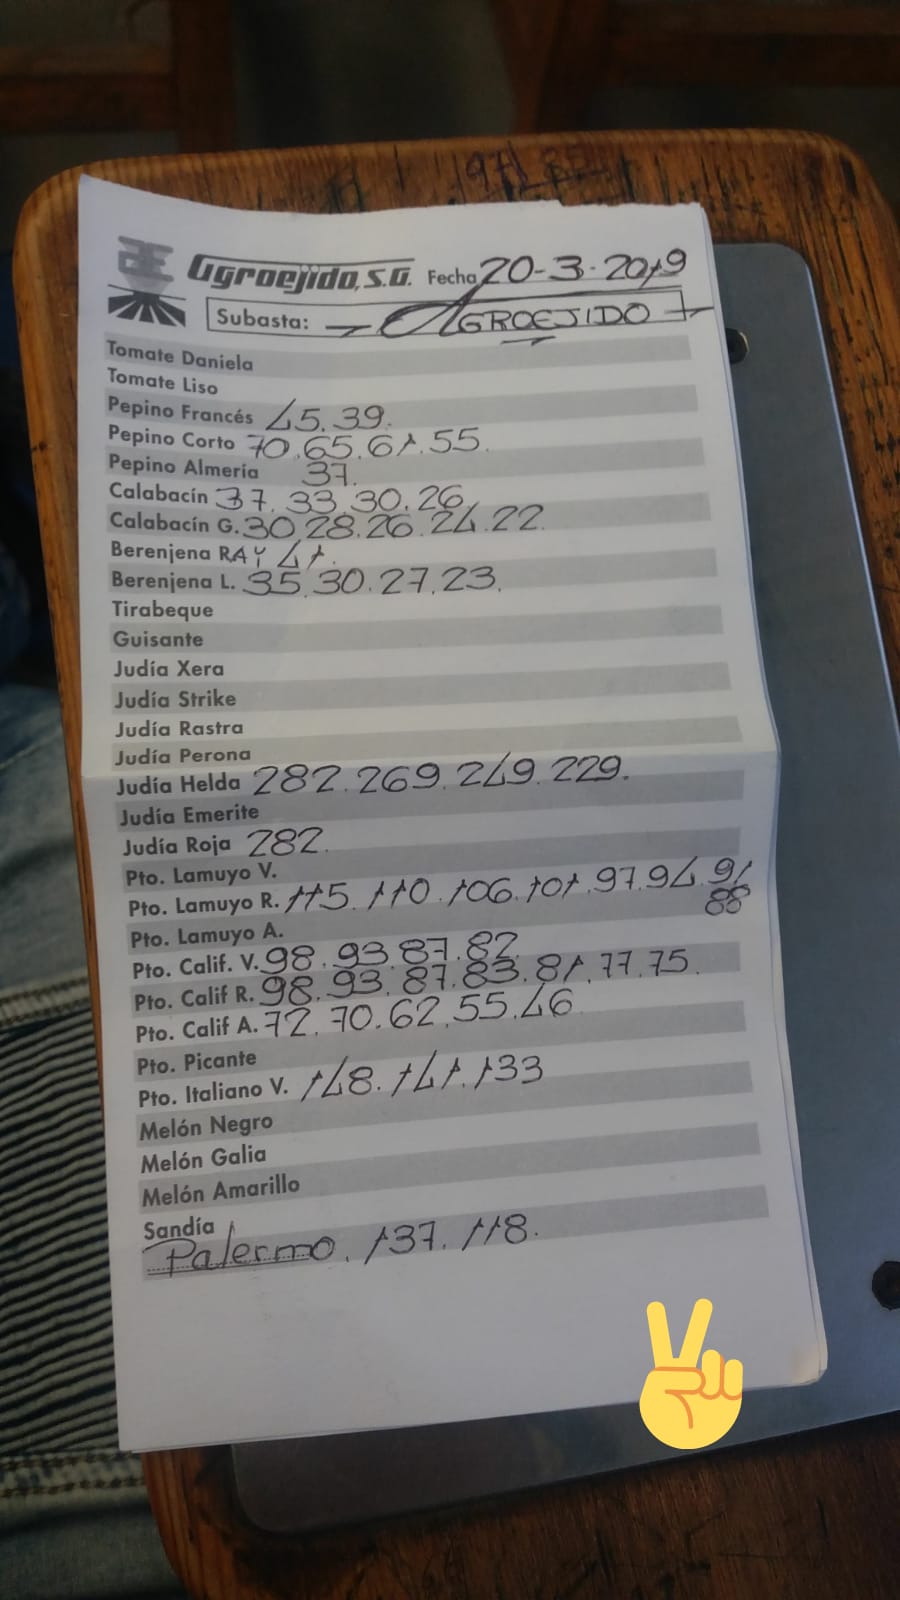 Agroejido, S.A. Fecha 20-3-2019
Subasta: AGROEJIDO
Tomate Daniela
Tomate Liso
Pepino Francés 45.39.
Pepino Corto 70.65.61.55.
Pepino Almería 37.
Calabacín 37.33.30.26
Calabacín G. 30.28.26.24.22.
Berenjena RAY 41.
Berenjena L. 35.30.27.23.
Tirabeque
Guisante
Judía Xera
Judía Strike
Judía Rastra
Judía Perona
Judía Helda 282.269.249.229.
Judía Emerite
Judía Roja 282.
Pto. Lamuyo V.
Pto. Lamuyo R. 115.110.106.101.97.94.91
88
Pto. Lamuyo A.
Pto. Calif. V. 98.93.87.82
Pto. Calif R. 98.93.87.83.81.77.75.
Pto. Calif A. 72.70.62.55.46
Pto. Picante
Pto. Italiano V. 148.141.133
Melón Negro
Melón Galia
Melón Amarillo
Sandía
Palermo. 137.118.